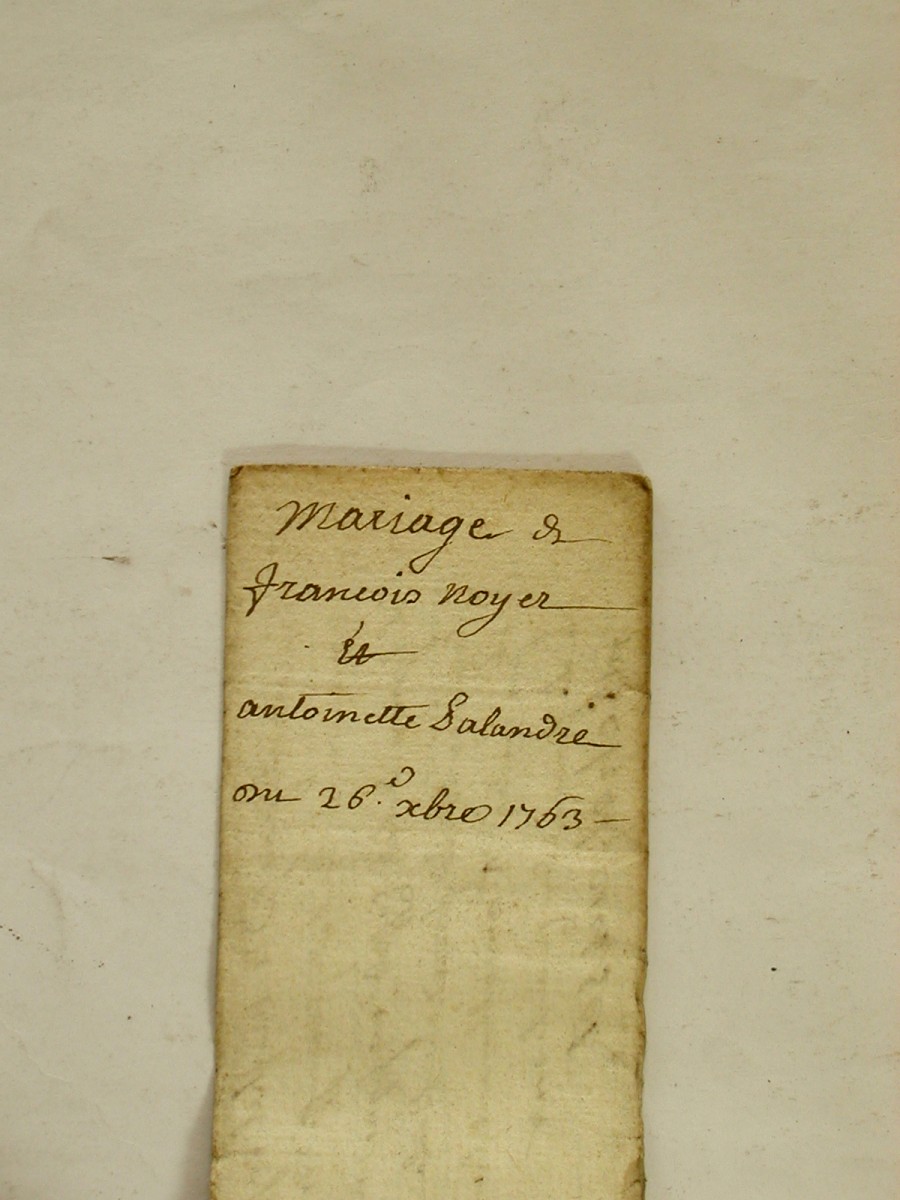 Mariage de
francois noyer
Et
antoinette Lalandre
Du 26.e xbre 1763 -